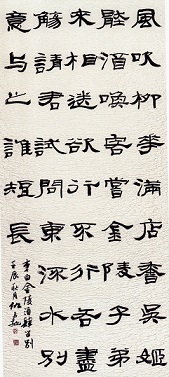 風吹柳花滿店香吳姬
壓酒喚客嘗金陵子弟
來相送欲行不行各盡
觴請君試問東流水別
意与之誰短長
李白金陵酒肆留别
壬辰秋月